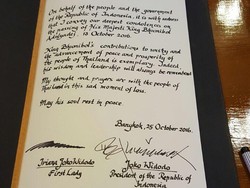 On behalf of the people and the government
of the Republic of Indonesia, it is with sadness
that I convey our deepest condolences on
the passing of His Majesty King Bhumibol
Adulyadej 13 October 2016.
King Bhumibol's contributions to society and
the advancement of peace and prosperity of
the people of Thailand is exemplary
his wisdom and leadership will always be remembered
My thought and prayers are with the people of
Thailand in this sad moment of loss.
May his soul rest in peace.
Bangkok, 25 October 2016.
Iriana Joko Widodo
First Lady
Joko Widodo
President of the Republic of
Indonesia